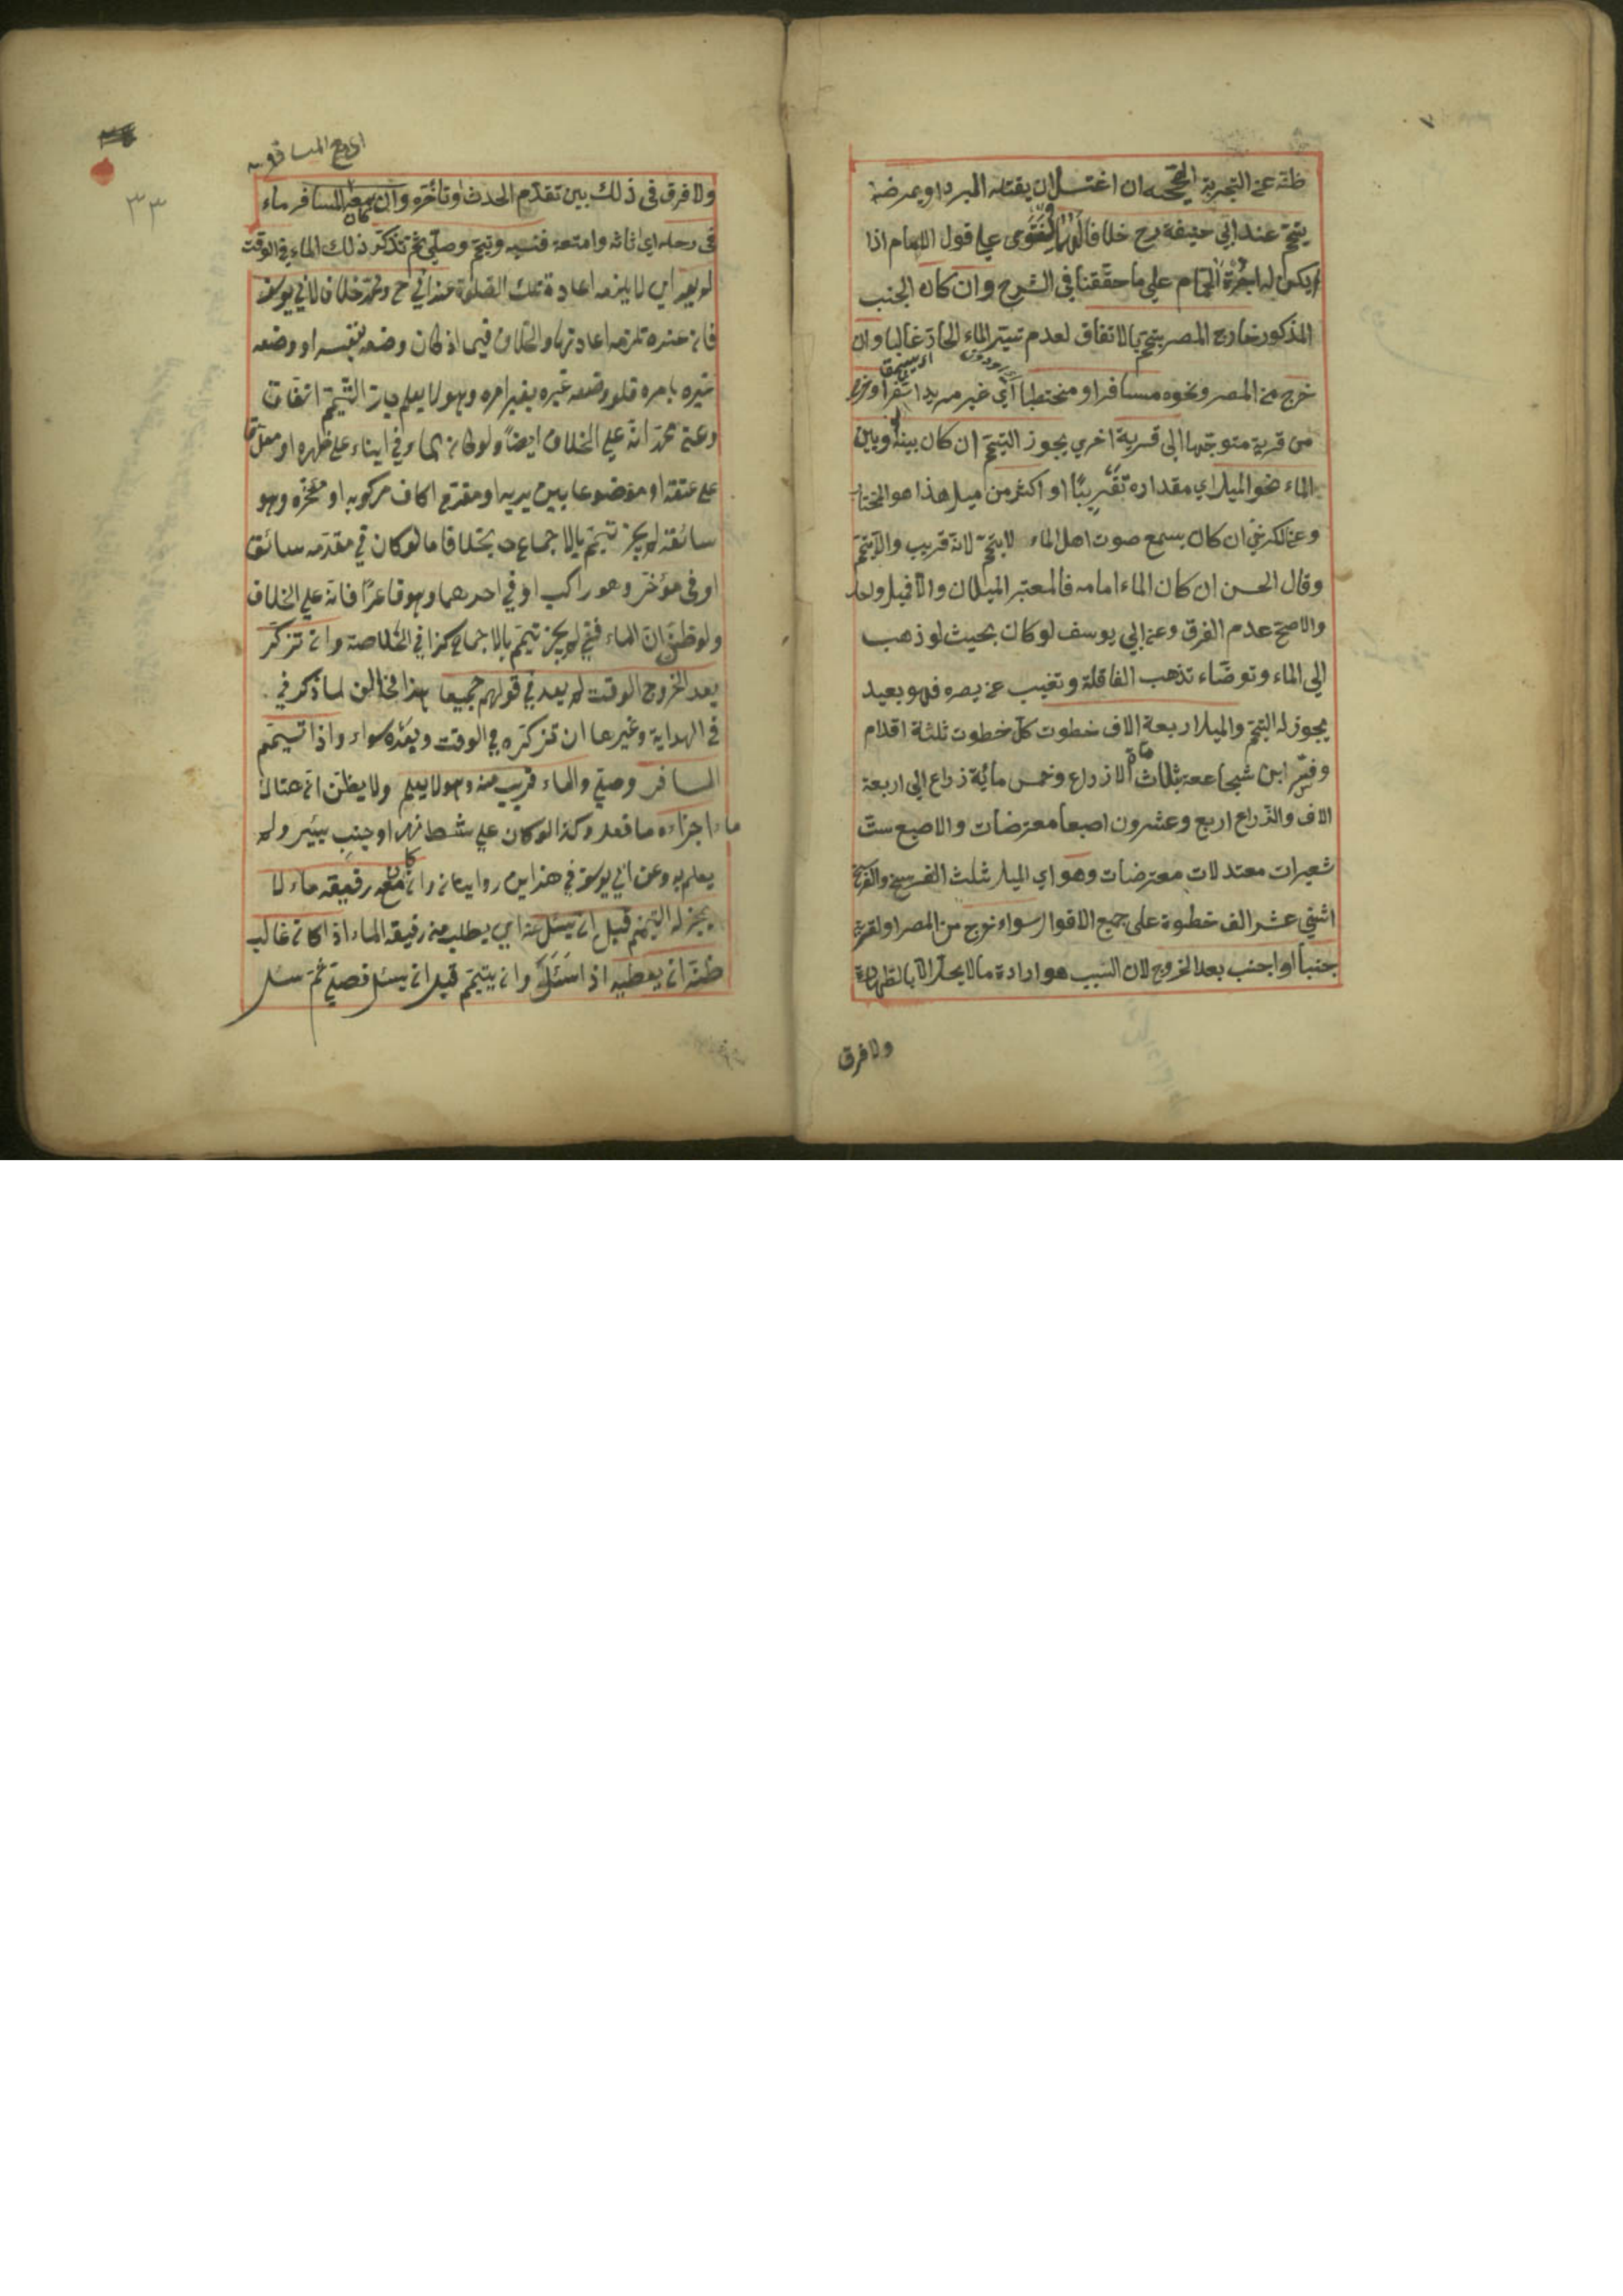 ظنه عن التجربة الصحيحه ان اغتسل ان يقتله البرد او يمرضه
يتيمّم عند ابي حنيفة رح خلافا لهما والفتوى على قول الامام اذا
لم يكن له اجرة الحمّام على ما حققنا في الشرح وان كان الجنب
المذكور خارج المصر يتيمّم بالاتفاق لعدم تيسّر الماء الحارّ غالبا وان
خرج من المصر ونحوه مسافرا او محتطبا اي غير مريد اسفرا او خرج
من قرية متوجّها الى قرية اخرى يجوز التيمّم ان كان بينه وبين
الماء نحو الميل اي مقداره تقريبًا او اكثر من ميل هذا هو المختار
وعن الكرخي ان كان يسمع صوت اهل الماء لا يتيمّم لانه قريب والّا يتيمّم
وقال الحسن ان كان الماء امامه فالمعتبر الميلان والّا فميل واحد
والاصحّ عدم الفرق وعن ابي يوسف لو كان بحيث لو ذهب
الى الماء وتوضّاء تذهب القافلة وتغيب عن بصره فهو بعيد
يجوز له التيمّم والميل اربعة الاف خطوت كلّ خطوت ثلثة اقدام
وفسّر ابن شجاع بثلاثة الاف ذراع وخمس مائة ذراع الى اربعة
الاف والذّراع اربع وعشرون اصبعا معترضات والاصبع ستّ
شعيرات معتدلات معترضات وهو اي الميل ثلث الفرسخ والفرسخ
اثني عشر الف خطوة على جميع الاقوال سواء خرج من المصر او القرية
جنبا او اجنب بعد الخروج لان السّبب هو ارادة ما لا يحلّ الّا بالطّهارة
ولا فرق
اى مع المسافر
٣٣
ولا فرق في ذلك بين تقدّم الحدث او تأخّره وان كان مع المسافر ماء
في رحله اي اثاثه وامتعة فنسيه وتيمّم وصلّى ثمّ تذكّر ذلك الماء في الوقت
لم يعد اي لا يلزمه اعادة تلك الصّلوة عند ابي ح ومحمّد خلافا لابي يوسف
فان عنده تلزمه اعادتها والخلاف فيما اذ كان وضعه بنفسه او وضعه
غيره بامره فلو وضعه غيره بغير امره وهو لا يعلم جاز التّيمّم اتّفاقا
وعن محمّد انه على الخلاف ايضاً ولو كان الماء في ايناء على ظهره او معلّقا
على عنقه او موضوعا بين يديه او مقدّم اكاف مركوبه او مؤخّره وهو
سائقه لم يجز تيمّم بالاجماع بخلاف ما لو كان في مقدّمه سائق
او في مؤخّر وهو راكب او في احدهما وهو قاعدًا فانه على الخلاف
ولو ظنّ ان الماء فني لم يجز تيمّم بالاجماع كذا في الخلاصة وان تذكّر
بعد الخروج الوقت لم يعد في قولهم جميعا هذا مخالف لما ذكر في
في الهداية وغيرها ان تذكّره في الوقت وبعده سواء واذا تيمّم
المسافر وصلّى والماء قريب منه وهو لا يعلم ولا يظنّ ان هنالك
ماءً اجزاءه ما فعل وكذا لو كان على شطّ نهر او جنب بيئر ولم
يعلم به وعن ابي يوسف في هذا اين روايتان وان كان مع رفيقه ماء لا
يجز له التيمّم قبل ان يسئل عنه اي يطلب من رفيقه الماء اذا كان غالب
ظنّه ان يعطيه اذا سَئَلَ وان تيمّم قبل ان يسئل فصلّى ثمّ سئل